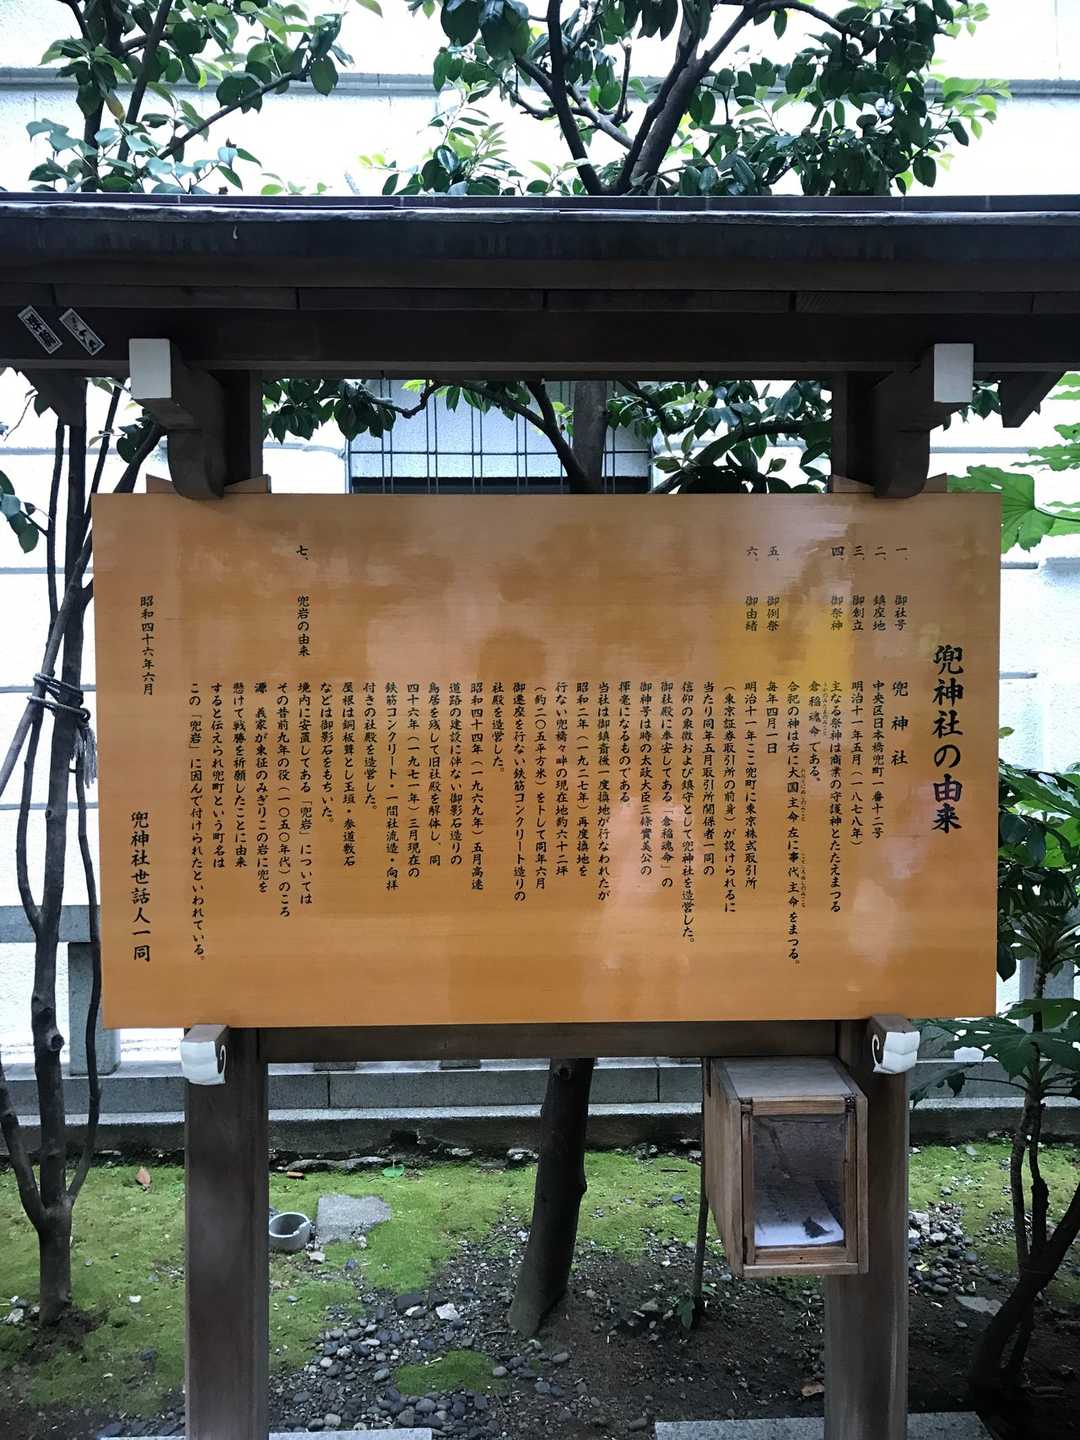 兜神社の由来
一、 御社号 兜神社
二、 鎮座地 中央区日本橋兜町一番十二号
三、 御創立 明治十一年五月(一八七八年)
四、 御祭神 主なる祭神は商業の守護神とたたえまつる
倉稲魂命である。
合祀の神は右に大国主命左に事代主命をまつる。
五、 御例祭 毎年四月一日
六、 御由緒 明治十一年ここ兜町に東京株式取引所
(東京証券取引所の前身)が設けられるに
当たり同年五月取引所関係者一同の
信仰の象徴および鎮守として兜神社を造営した。
御社殿に奉安してある「倉稲魂命」の
御神号は時の太政大臣三條實美公の
揮毫になるものである
当社は御鎮斎後一度換地が行なわれたが
昭和二年(一九二七年)再度換地を
行ない兜橋々畔の現在地約六十二坪
(約二〇五平方米)を卜して同年六月
御遷座を行ない鉄筋コンクリート造りの
社殿を造営した。
昭和四十四年(一九六九年)五月高速
道路の建設に伴ない御影石造りの
鳥居を残して旧社殿を解体し、同
四十六年(一九七一年)三月現在の
鉄筋コンクリート・一間社流造・向拝
付きの社殿を造営した。
屋根は銅板葺とし玉垣・参道敷石
などは御影石をもちいた。
七、 兜岩の由来 境内に安置してある「兜岩」については
その昔前九年の役(一〇五〇年代)のころ
源 義家が東征のみぎりこの岩に兜を
懸けて戦勝を祈願したことに由来
すると伝えられ兜町という町名は
この「兜岩」に因んで付けられたといわれている。
昭和四十六年六月
兜神社世話人一同